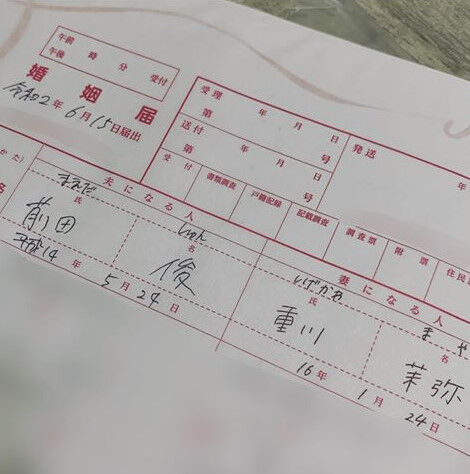 午前 時 分 受付
午後
婚姻届
令和2年6月15日届出
受理 年 月 日
第 号
送付 年 月 日
第 号
発送 年
受付 書類調査 戸籍記録 記載調査 調査票 附票 住民
かた) 夫になる人 妻になる人
まえだ しゅん しげかわ まや
氏 名 氏 名
名 前田 俊 重川 茉弥
平成14年5月24日 16年1月24日